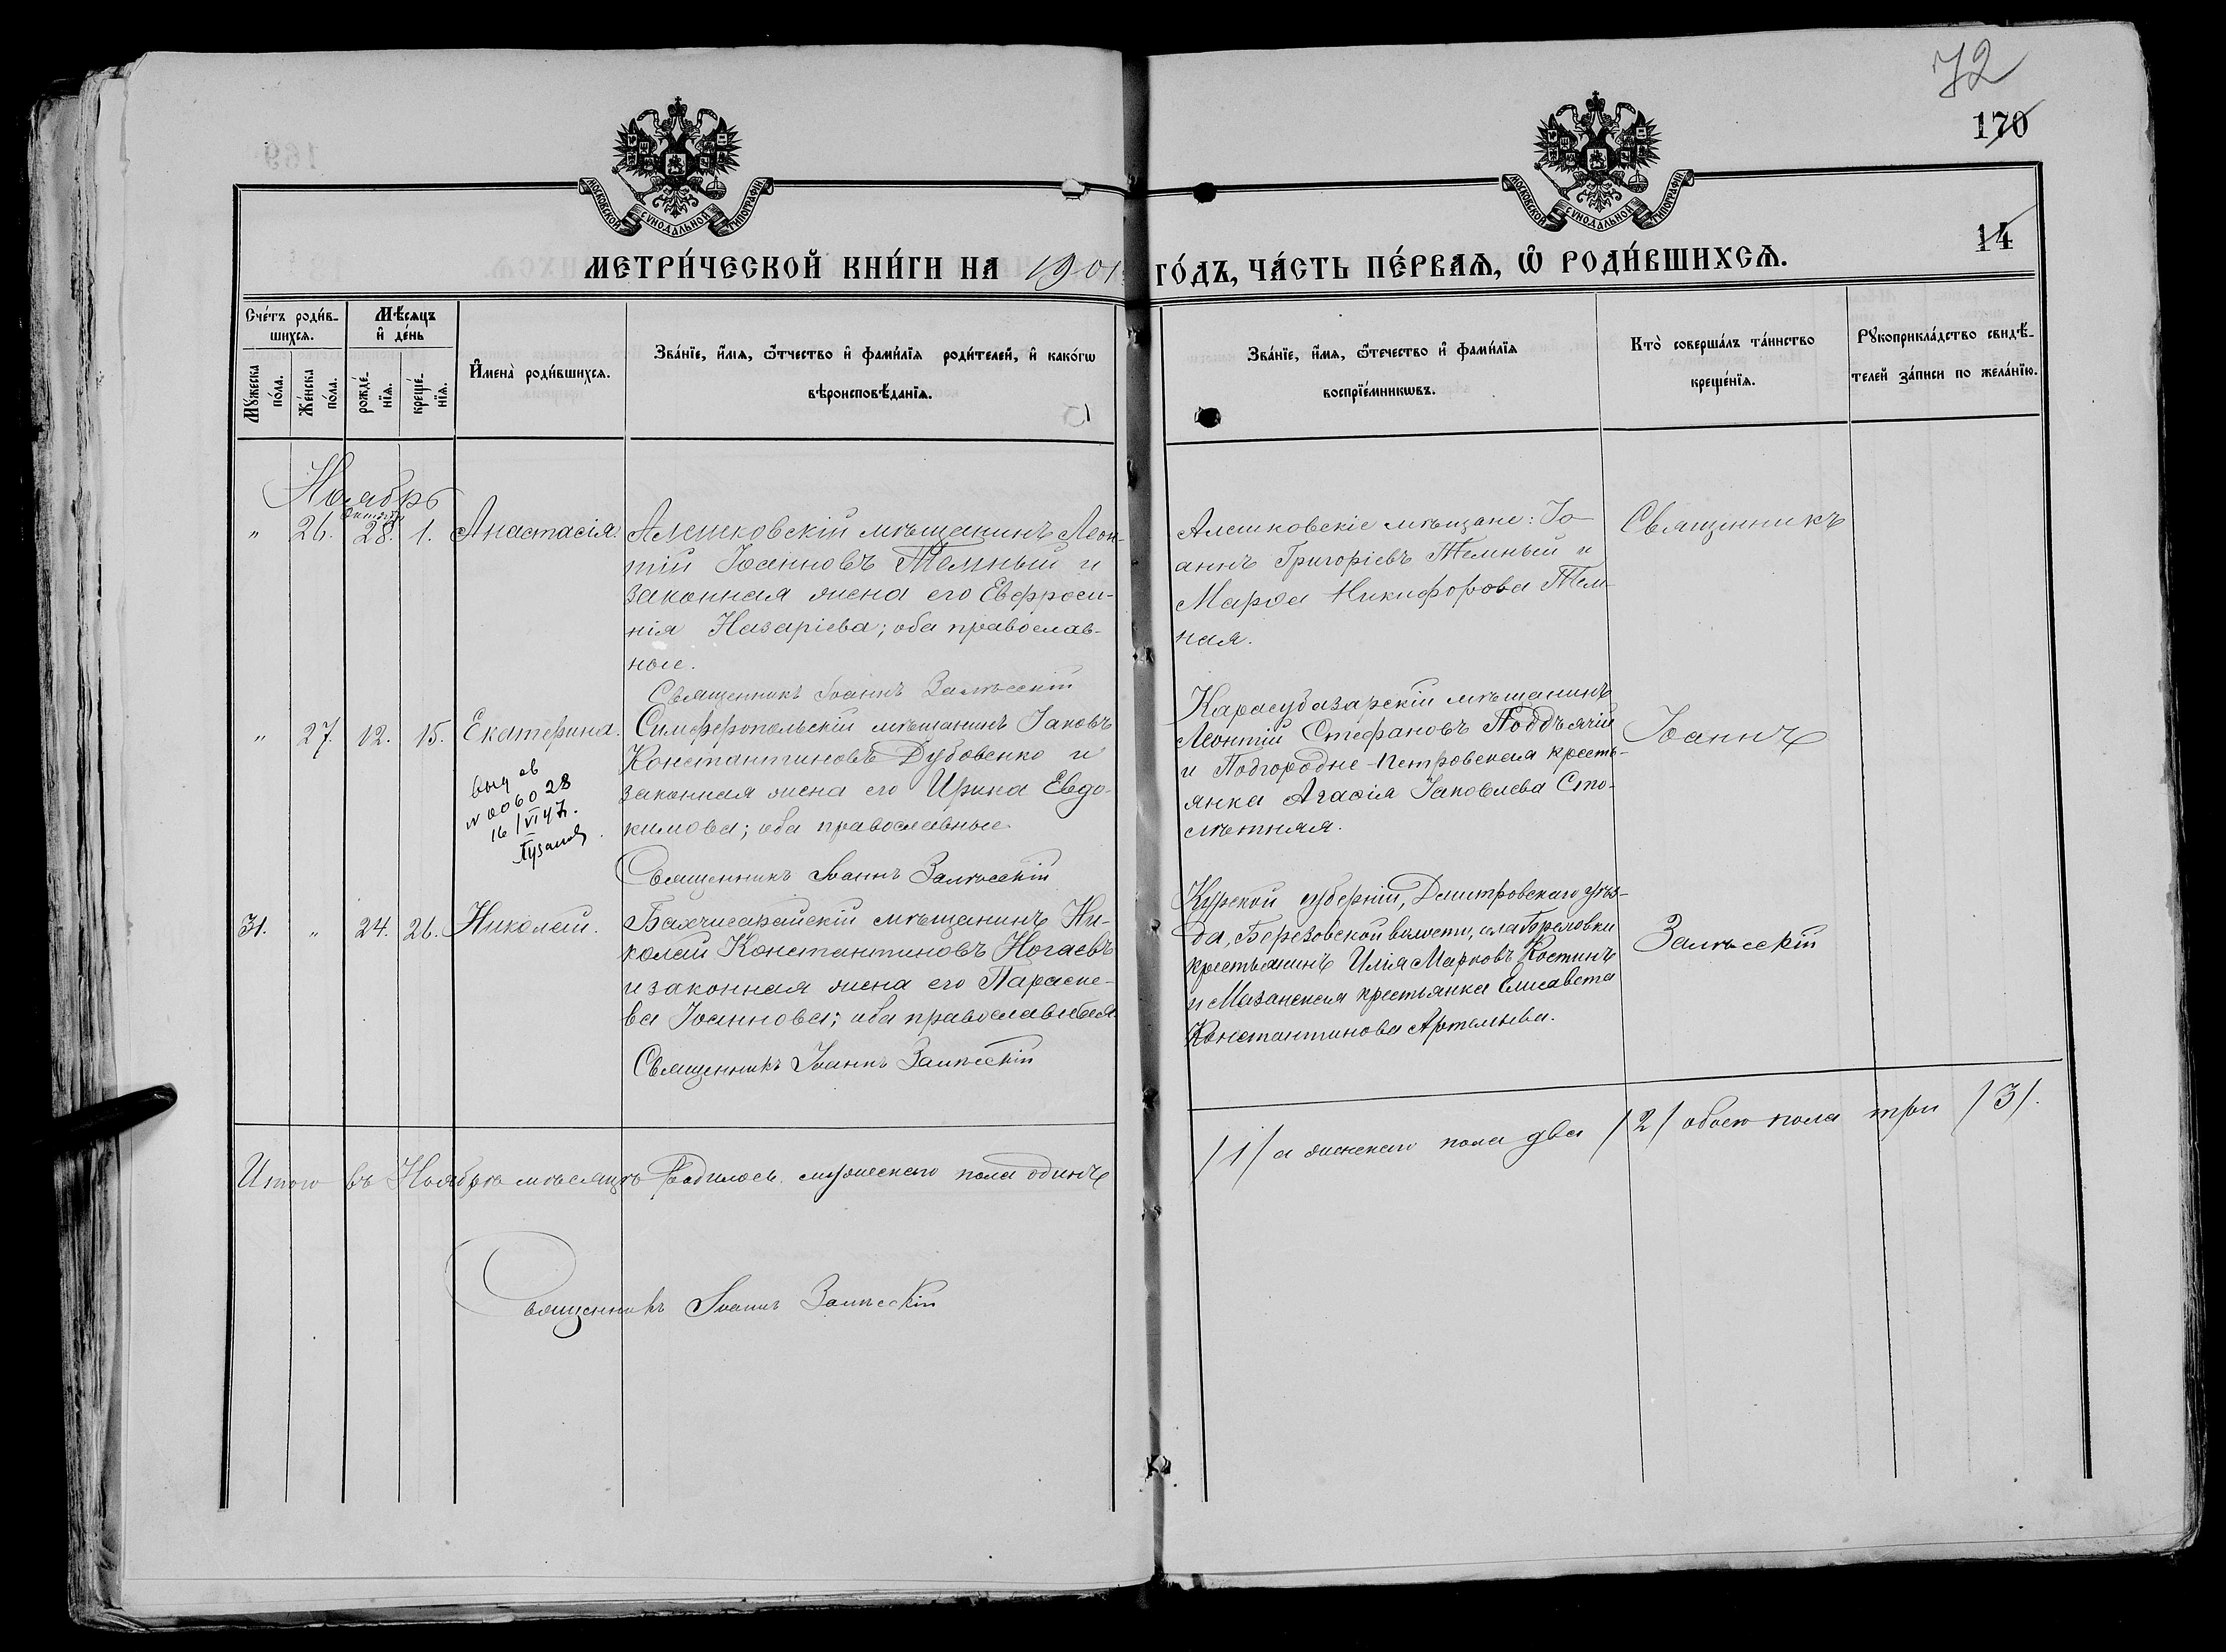 72
170
14
МОСКОВСКОЙ СУНОДАЛЬНОЙ ТИПОГРАФІИ
МОСКОВСКОЙ СУНОДАЛЬНОЙ ТИПОГРАФІИ
МЕТРИ́ЧЕСКОЙ КНИ́ГИ НА 1901 ГО́ДЪ, ЧА́СТЬ ПЕ́РВАѦ, Ѡ҆ РОДИ́ВШИХСѦ.
Сче́тъ роди́в-
шихсѧ.
Мꙋ́жеска по́ла.
Же́нска по́ла.
Мѣ́сѧцъ
и҆ де́нь
рожде́-
нїѧ.
креще́-
нїѧ.
И҆мена̀ роди́вшихсѧ.
Зва́нїе, и҆́мѧ, ѻ҆́тчество и҆ фами́лїѧ роди́телей, и҆ како́гѡ
вѣроисповѣ́данїѧ.
Зва́нїе, и҆́мѧ, ѻ҆́течество и҆ фами́лїѧ
воспрїе́мникѡвъ.
Кто̀ соверша́лъ та́инство
креще́нїѧ.
Рꙋкоприкла́дство свидѣ́-
телей за́писи по жела́нїю.
Ноябрь
Октябр
" 26. 28. 1. Анастасія.
Алешковскій мѣщанинъ Леон-
тій Іоанновъ Темный и
законная жена его Евфроси-
нія Назаріева; оба православ-
ные.
Священникъ Іоаннъ Залѣсскій
Алешковскіе мѣщане: Іо-
аннъ Григоріевъ Темный и
Марѳа Никифорова Тем-
ная.
Священникъ
" 27. 12. 15. Екатерина.
выд св
N 006028
16/VI 47.
Симферопольскій мѣщанинъ Іаковъ
Константиновъ Дубовенко и
законная жена его Ирина Евдо-
кимова; оба православные
Священникъ Іоаннъ Залѣсскій
Карасубазарскій мѣщанинъ
Леонтій Стефановъ Поддъячій
и Подгородне-Петровская кресть-
янка Агаѳія Іаковлева Сто-
смѣтняя.
Іоаннъ
31. " 24. 26. Николай.
Бахчисарайскій мѣщанинъ Ни-
колай Константиновъ Ногаевъ
и законная жена его Параске-
ва Іоаннова; оба православные
Священникъ Іоаннъ Залѣсскій
Курской губерніи, Дмитровскаго уѣз-
да, Березовской волости, села
крестьянинъ Илія Марковъ Костинъ
и Мазанская крестьянка Елисавета
Константинова Артемьева.
Залѣсскій
Итого въ Ноябрѣ мѣсяцѣ родилось мужескаго пола одинъ
/1/ а женскаго пола два /2/ обоего пола три /3/.
Священникъ Іоаннъ Залѣсскій